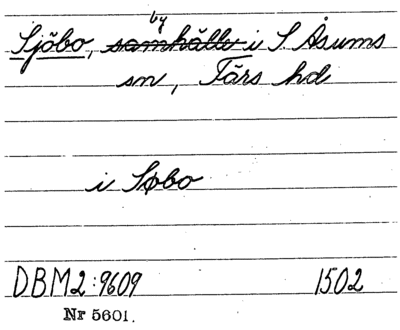 by
Sjöbo, samhälle i S. Åsums
sn, Färs hd
i Søbo
DBM2:9609 1502
Nr 5601.